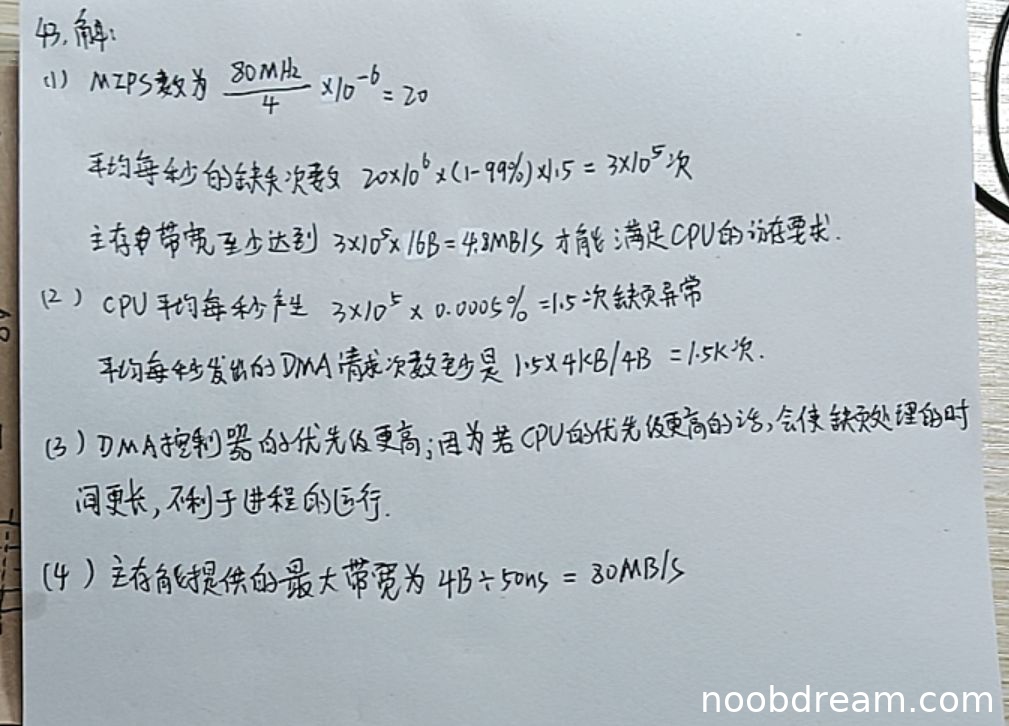 43.解:
(1) MIPS数为 80MHz/4 ×10⁻⁶ = 20
平均每秒的缺失次数 20×10⁶×(1-99%)×1.5 = 3×10⁵次
主存带宽至少达到 3×10⁵×16B=4.8MB/s 才能满足CPU的访存要求.
(2) CPU平均每秒产生 3×10⁵ × 0.0005% =1.5次缺页异常
平均每秒发出的DMA请求次数至少是 1.5×4KB/4B =1.5K次.
(3) DMA控制器的优先级更高;因为若CPU的优先级更高的话,会使缺页处理的时
间更长,不利于进程的运行.
(4) 主存能提供的最大带宽为 4B÷50ns = 80MB/s
noobdream.com